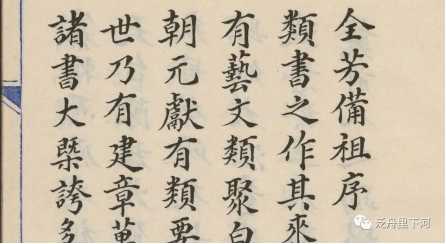 全芳備祖序
類書之作其來
有藝文類聚白
朝元獻有類要
世乃有建章萬
諸書大槩誇多
泛舟里下河